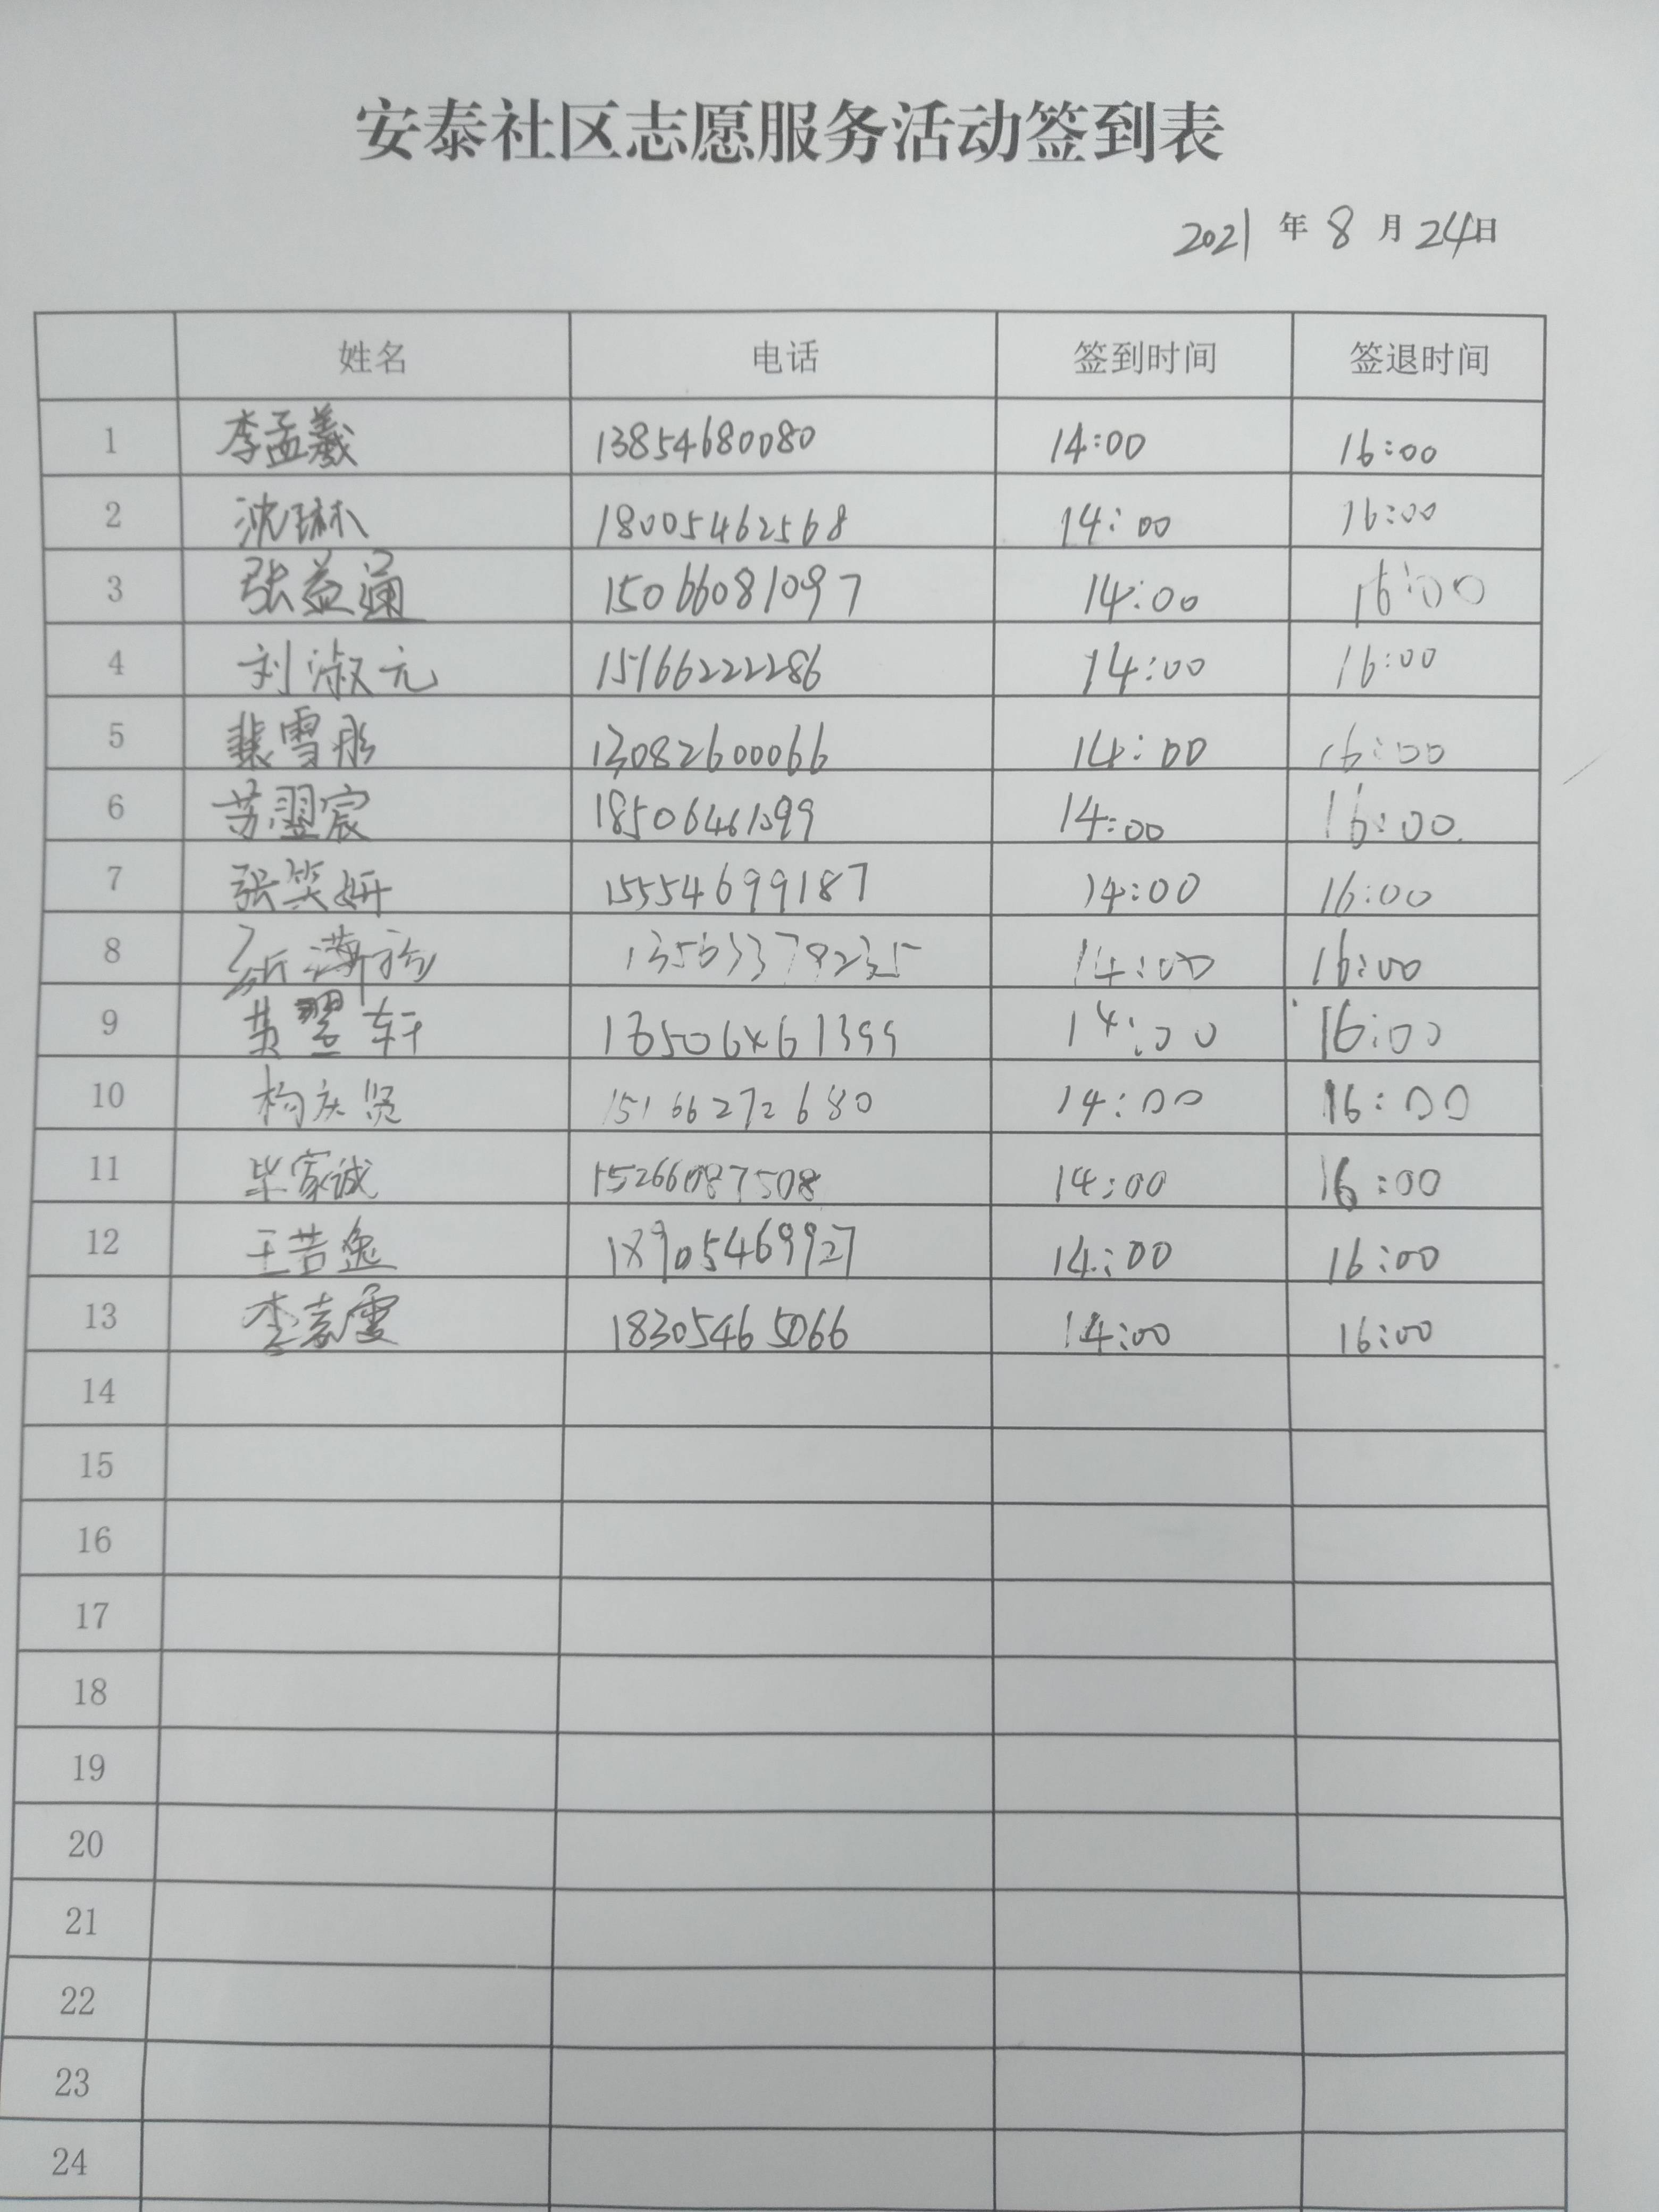 安泰社区志愿服务活动签到表
2021 年 8 月 24日
姓名 电话 签到时间 签退时间
1 李孟羲 13854680080 14:00 16:00
2 沈琳 18005462568 14:00 16:00
3 张益通 15066081097 14:00 16:00
4 刘淑元 15166222286 14:00 16:00
5 裴雪彤 13082600066 14:00 16:00
6 苏翌宸 18506461399 14:00 16:00
7 张笑妍 15554699187 14:00 16:00
8 14:00 16:00
9 翌轩 14:00 16:00
10 庆贤 15166272680 14:00 16:00
11 毕家诚 15266087508 14:00 16:00
12 王若逸 18905469927 14:00 16:00
13 李嘉雯 18305465066 14:00 16:00
14
15
16
17
18
19
20
21
22
23
24